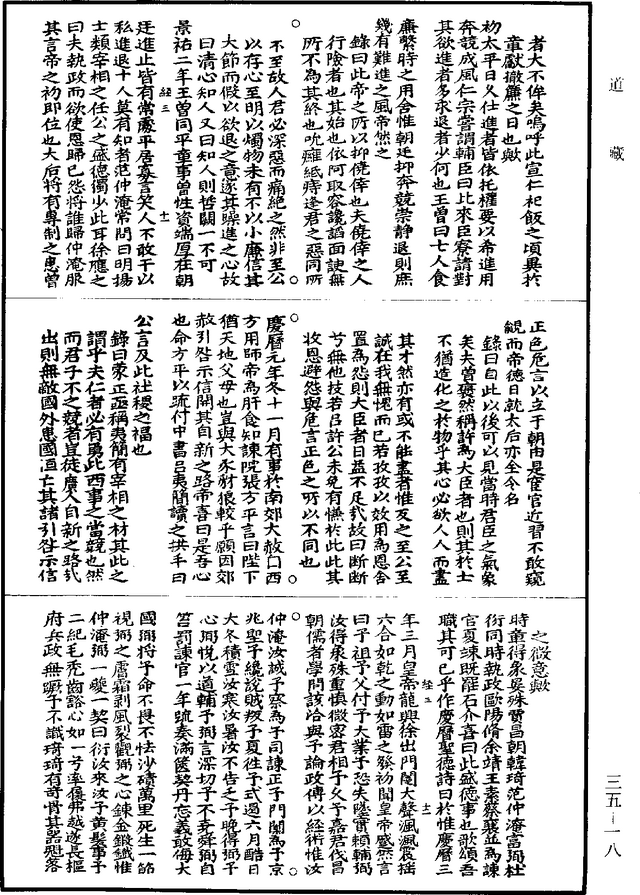 道藏
者大不侔矣嗚呼此宣仁祀飯之頃異於
章獻撤簾之日也歟
初太平日久仕進者皆依托權要以希進用
奔競成風仁宗嘗謂輔臣曰比來臣寮請對
其欲進者多求退者少何也王曾曰士人貪
廉繫時之用舍惟朝廷抑奔競崇靜退則庶
幾有難進之風帝然之
錄曰此帝之所以抑僥倖也夫僥倖之人
行險者也其始也依阿取容讒謟面諛無
所不為其終也吮癰紙痔逢君之惡同所
不至故人君必深惡而痛絕之然非至公
以存心至明以燭物未有不以小廉信其
大節而假以欲退之意遂其躁進之心故
曰清心知人又曰知人則哲闕一不可
景祐二年王曾同平童事曾性資端厚在朝
廷進止皆有常處平居寡言笑人不敢干以
私進退士人莫有知者范仲淹常問曰明揚
士類宰相之任公之盛德獨少此耳徐應之
曰夫執政而欲使恩歸己怨將誰歸仲淹服
其言帝之初即位也太后將有專制之患曾
正色危言以立于朝由是宦官近習不敢窺
覦而帝德日就太后亦全令名
錄曰自此以後可以見當時君臣之氣象
矣夫曾襃然稱許為大臣者也則其於士
不猶造化之於物乎其心必欲人人而盡
其才然亦有或不能盡者惟反之至公至
誠在我無愧而已若孜孜以效用為恩舍
置為怨則大臣者日益不足哉故曰斷斷
兮無他技若呂許公未免有慊於此此其
收恩避怨與危言正色之所以不同也
慶曆元年冬十一月有事於南郊大赦囗西
方用師帝為旰食知諫院張方平言曰陛下
猶天地父母也豈與犬豕豺狼較乎願因郊
赦引咎示信開其自新之路帝喜曰是吾心
也命方平以疏付中書呂夷簡讀之拱手曰
公言及此社稷之福也
錄曰蒙正亟稱夷簡有宰相之材其此之
謂乎夫仁者必有勇此西事之當競也然
而君子不之競者豈徒廣人自新之路哉
出則無敵國外患國洹亡其諸引咎示信
之微意歟
時童得象晏殊賈昌朝韓琦范仲淹富弼杜
衍同時執政歐陽脩余靖王素蔡襄並為諫
官夏竦既罷石介喜曰此盛德事也歌頌吾
職其可已乎作慶曆聖德詩曰於惟慶曆三
年三月皇帝龍興徐出門闥大聲渢渢震搖
六合如乾之動如雷之發初聞皇帝慼然言
曰予祖予父付予大業予恐失墜實賴輔弼
汝得象殊重慎微密君相予久予嘉君伐昌
朝儒者學問該洽與予論政傅以經術惟汝
仲淹汝誠予察為予司諫正予門闑為予京
兆聖予纔說賊叛予夏往予式遏六月酷日
大冬積雪汝寒汝暑汝不告乏予晚得弼予
心弼悅以道輔予弼言深切予不堯舜弼自
笞罰諫官一年疏奏滿篋契丹忘義敢侮大
國弼將予命不畏不怯沙磧萬里死生一節
視弼之膚霜剥風裂觀弼之心鍊金鍛鐵惟
仲淹弼一夔一契曰衍汝來汝予黃髮事予
二紀毛禿齒豁心如一兮率履弗越遂長樞
府兵政無蹶予不識琦琦有奇骨其器魁落
三五一一八